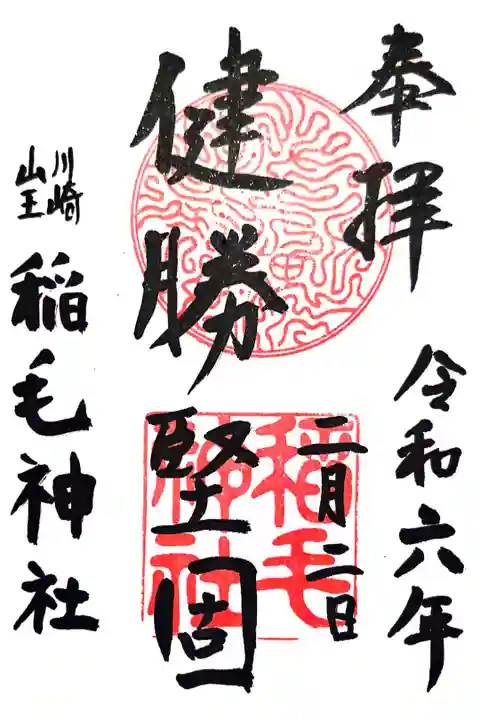 奉拝
令和六年
二月二日
健勝堅固
川崎
山王
稲毛神社
稲毛
神社